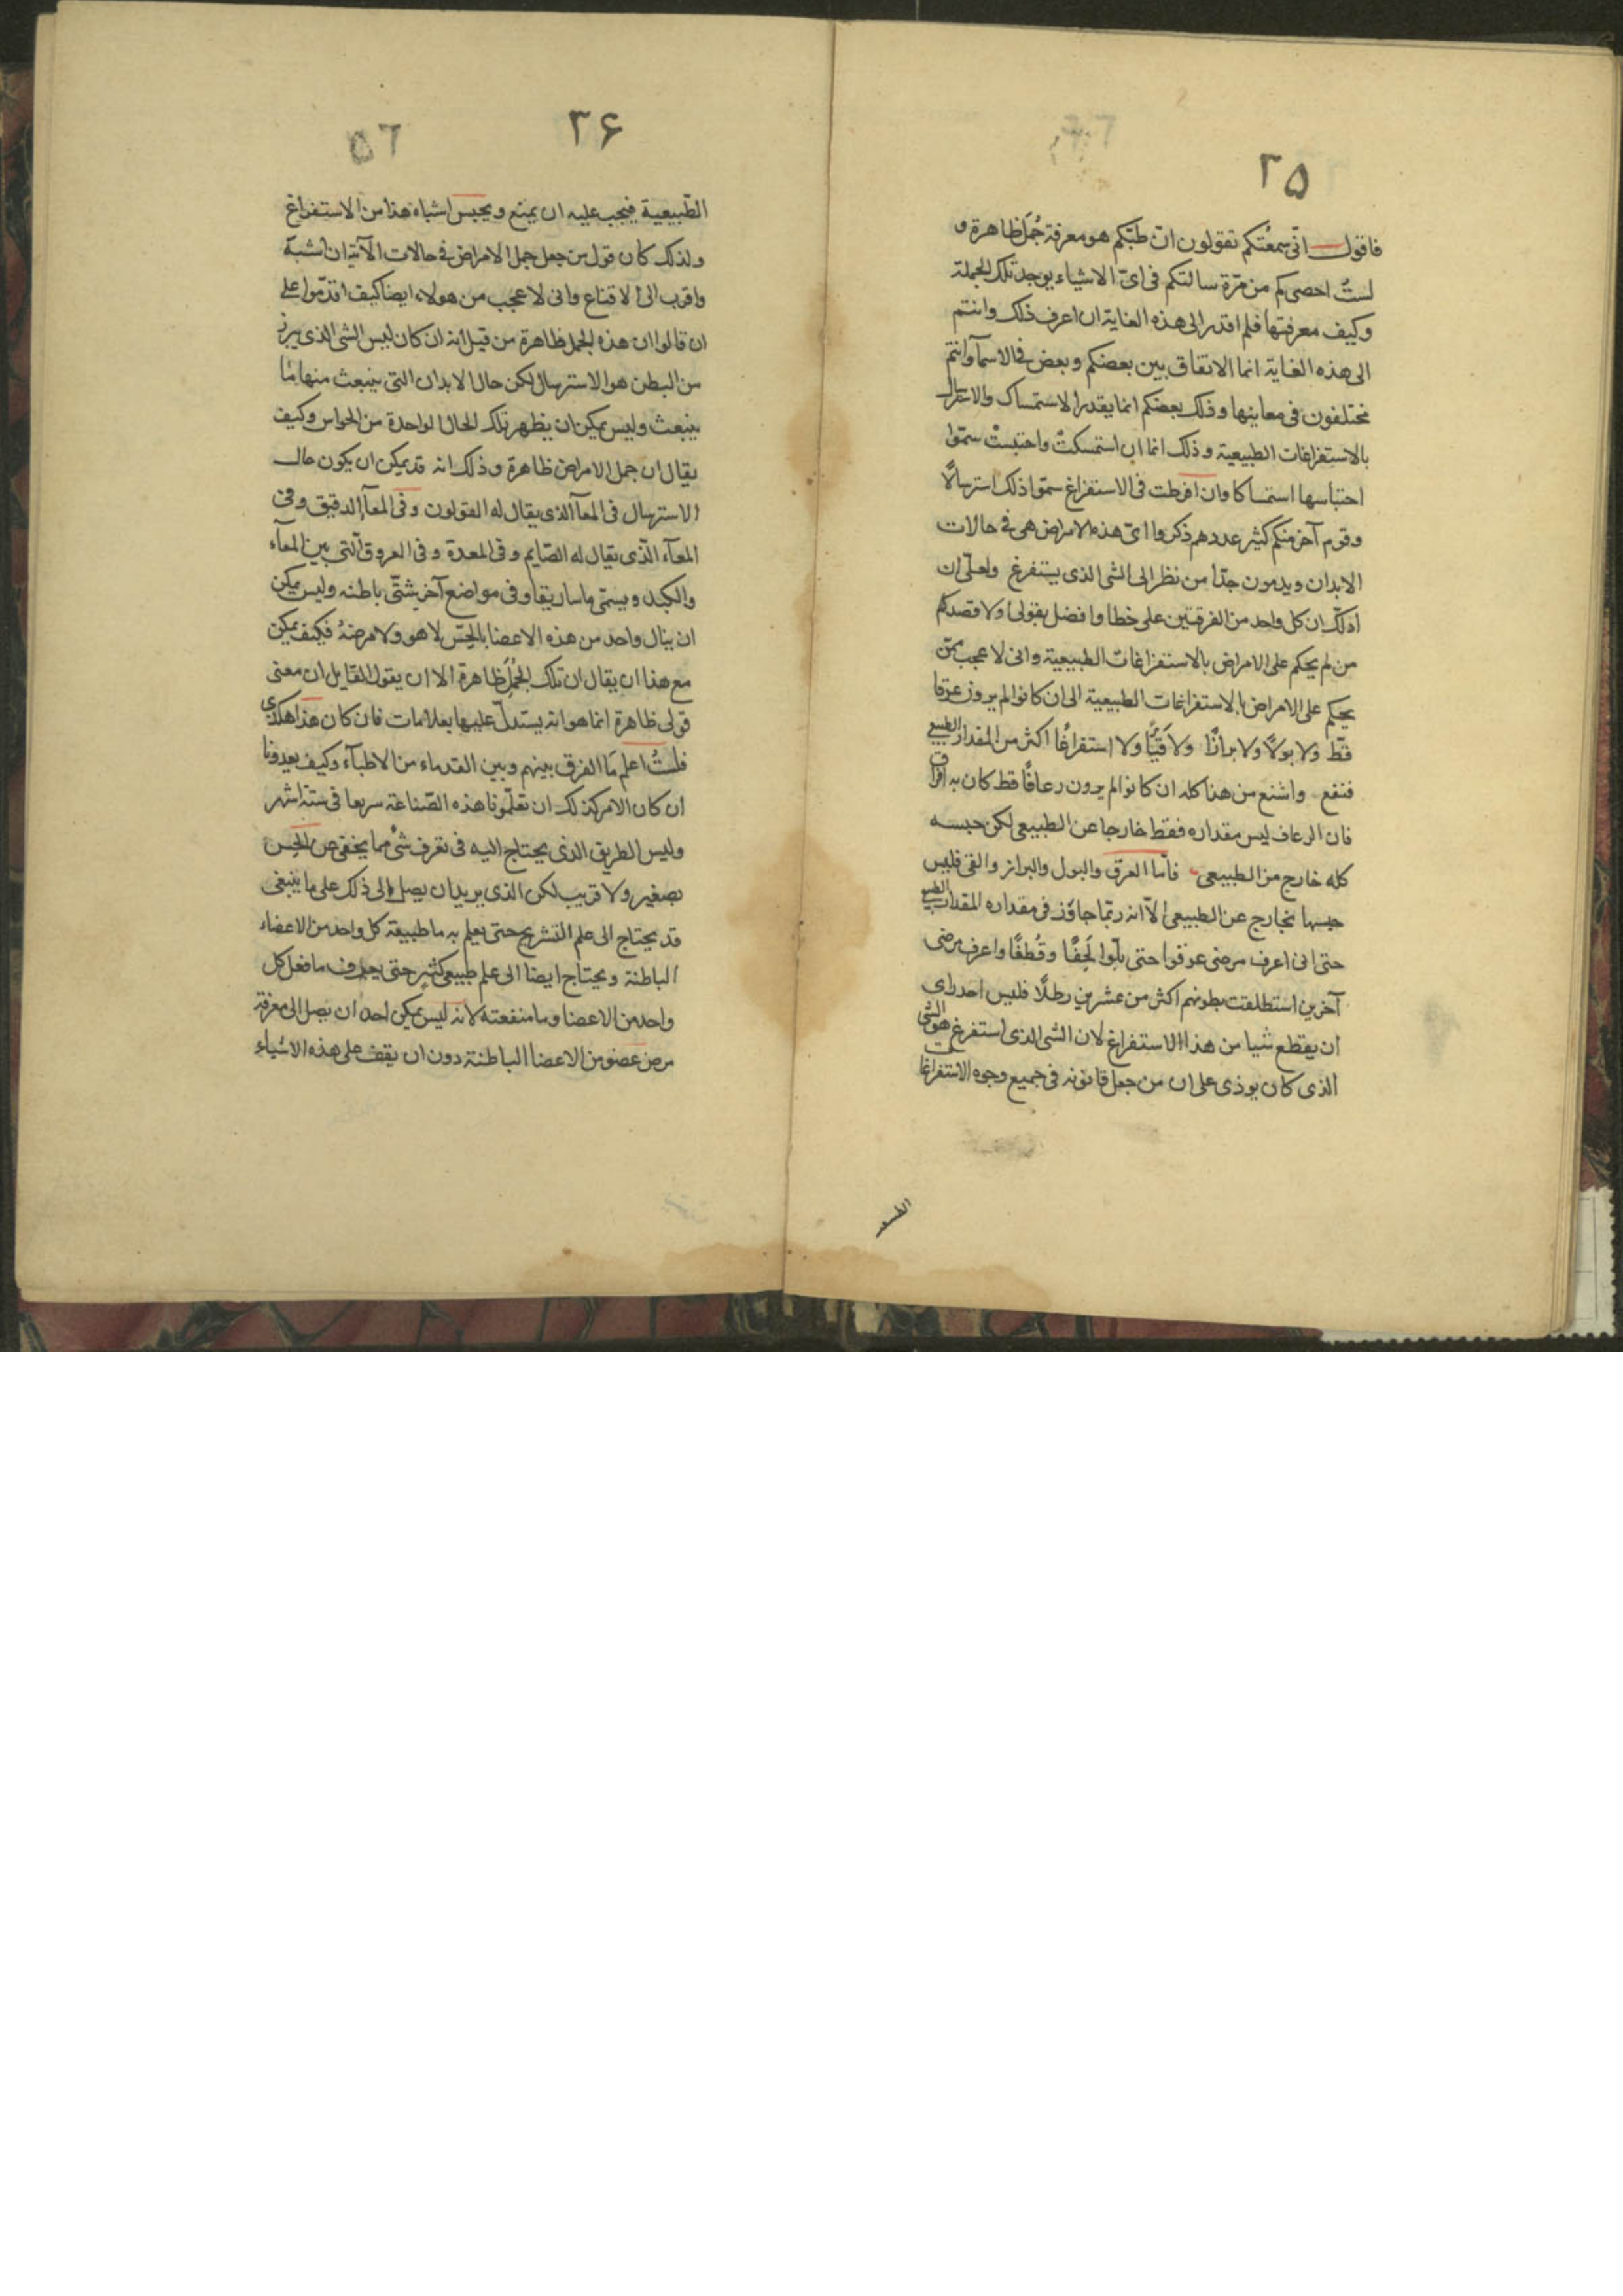 ٢٥
فاقول انّى سمعتكم تقولون انّ طبّكم هو معرفة جُمَل ظاهرة و
لستُ احصى كم من مرّة سالتكم فى اىّ الاشياء يوجد تلك الجملة
وكيف معرفتها فلم اقدر الى هذه الغاية ان اعرف ذلك وانتم
الى هذه الغاية انما الاتفاق بين بعضكم وبعض فى الاسمآ وانتم
مختلفون فى معاينها وذلك بعضكم انما يقدر الاستمساك والاسترسال
بالاستفراغات الطبيعية وذلك انما ان استمسكتْ واحتبستْ سمّوا
احتباسها استمساكا وان افرطت فى الاستفراغ سمّوا ذلك استرسالًا
وقوم آخر منكم كثير عددهم ذكروا انّ هذه الامراض هى فى حالات
الابدان ويذمون جدّا من نظر الى الشى الذى يستفرغ ولعلّى ان
ادلّك ان كل واحد من الفرقتين على خطا وافضل بقولى اولا قصدكم
من لم يحكم على الامراض بالاستفراغات الطبيعية وانى لاعجب ممّن
يحكم على الامراض بالاستفراغات الطبيعية الى ان كانوا لم يروز عرقا
قطّ ولا بولًا ولا برازًا ولا قيًّا ولا استفراغًا اكثر من المقدار الطبيعى
فنفع واشنع من هذا كله ان كانوا لم يرون رعافًا قط كان به افراق
فان الرعاف ليس مقداره فقط خارجا عن الطبيعى لكن حبسه
كله خارج من الطبيعى فاما العرق والبول والبراز والقى فليس
حبسها بخارج عن الطبيعى الّا انه ربّما جاوَز فى مقداره المقدار الطبيعى
حتى انى اعرف مرضى عرقوا حتى بلّوا لَحِفًا وقُطفًا واعرف مرضى
آخرين استطلقت بطونهم اكثر من عشرين رطلًا فليس احد راى
ان يقطع شيا من هذا الاستفراغ لان الشى الذى استفرغ هو الشى
الذى كان يوذى على ان من جعل قانونه فى جميع وجوه الاستفراغات
٢۶
٥٦
الطّبيعية فيجب عليه ان يمنع ويحبس اشباه هذا من الاستفراغ
ولذلك كان قول من جعل جمل الامراض فى حالات الآتية ان اشبه
واقرب الى الاقناع وانى لاعجب من هولاء ايضا كيف اقدموا على
ان قالوا ان هذه الجمل ظاهرة من قبل انه ان كان ليس الشى الذى يبرز
من البطن هو الاسترسال لكن حال الابدان التى ينبعث منها ما
ينبعث وليس يمكن ان يظهر تلك الحال لواحدة من الحواس وكيف
يقال ان جمل الامراض ظاهرة وذلك انه قد يمكن ان يكون حال
الاسترسال فى المعآ الذى يقال له القولون وفى المعآ الدقيق وفى
المعآء الّذى يقال له الصّايم وفى المعدة وفى العروق الّتى بين المعآء
والكبد ويسمّى ماساريقا وفى مواضع آخر شتّى باطنه وليس يمكن
ان ينال واحد من هذه الاعضا بالحِسّ لا هو ولا مرضهُ فكيف يمكن
مع هذا ان يقال ان تلك الجُمَل ظاهرة الا ان يقول القايل ان معنى
قولى ظاهرة انما هو انه يستدلّ عليها بعلامات فان كان هذا هكذى
فلستُ اعلم مَا الفرق بينهم وبين القدماء من الاطبآء وكيف يعدونا
ان كان الامر كذلك ان تعلّمونا هذه الصّناعة سريعا فى ستة اشهر
وليس الطريق الذى يحتاج اليه فى تعرف شئ مما يخفى عن الحِس
بصغير ولا قريب لكن الذى يريد ان يصل الى ذلك على ما ينبغى
قد يحتاج الى علم التشريح حتى يعلم به ما طبيعة كل واحد من الاعضاء
الباطنة ويحتاج ايضا الى علم طبيعى كثير حتى يعرف ما فعل كل
واحد من الاعضا وما منفعته لانه ليس يمكن احد ان يصل الى معرفة
مرض عضو من الاعضا الباطنة دون ان يقف على هذه الاشياء